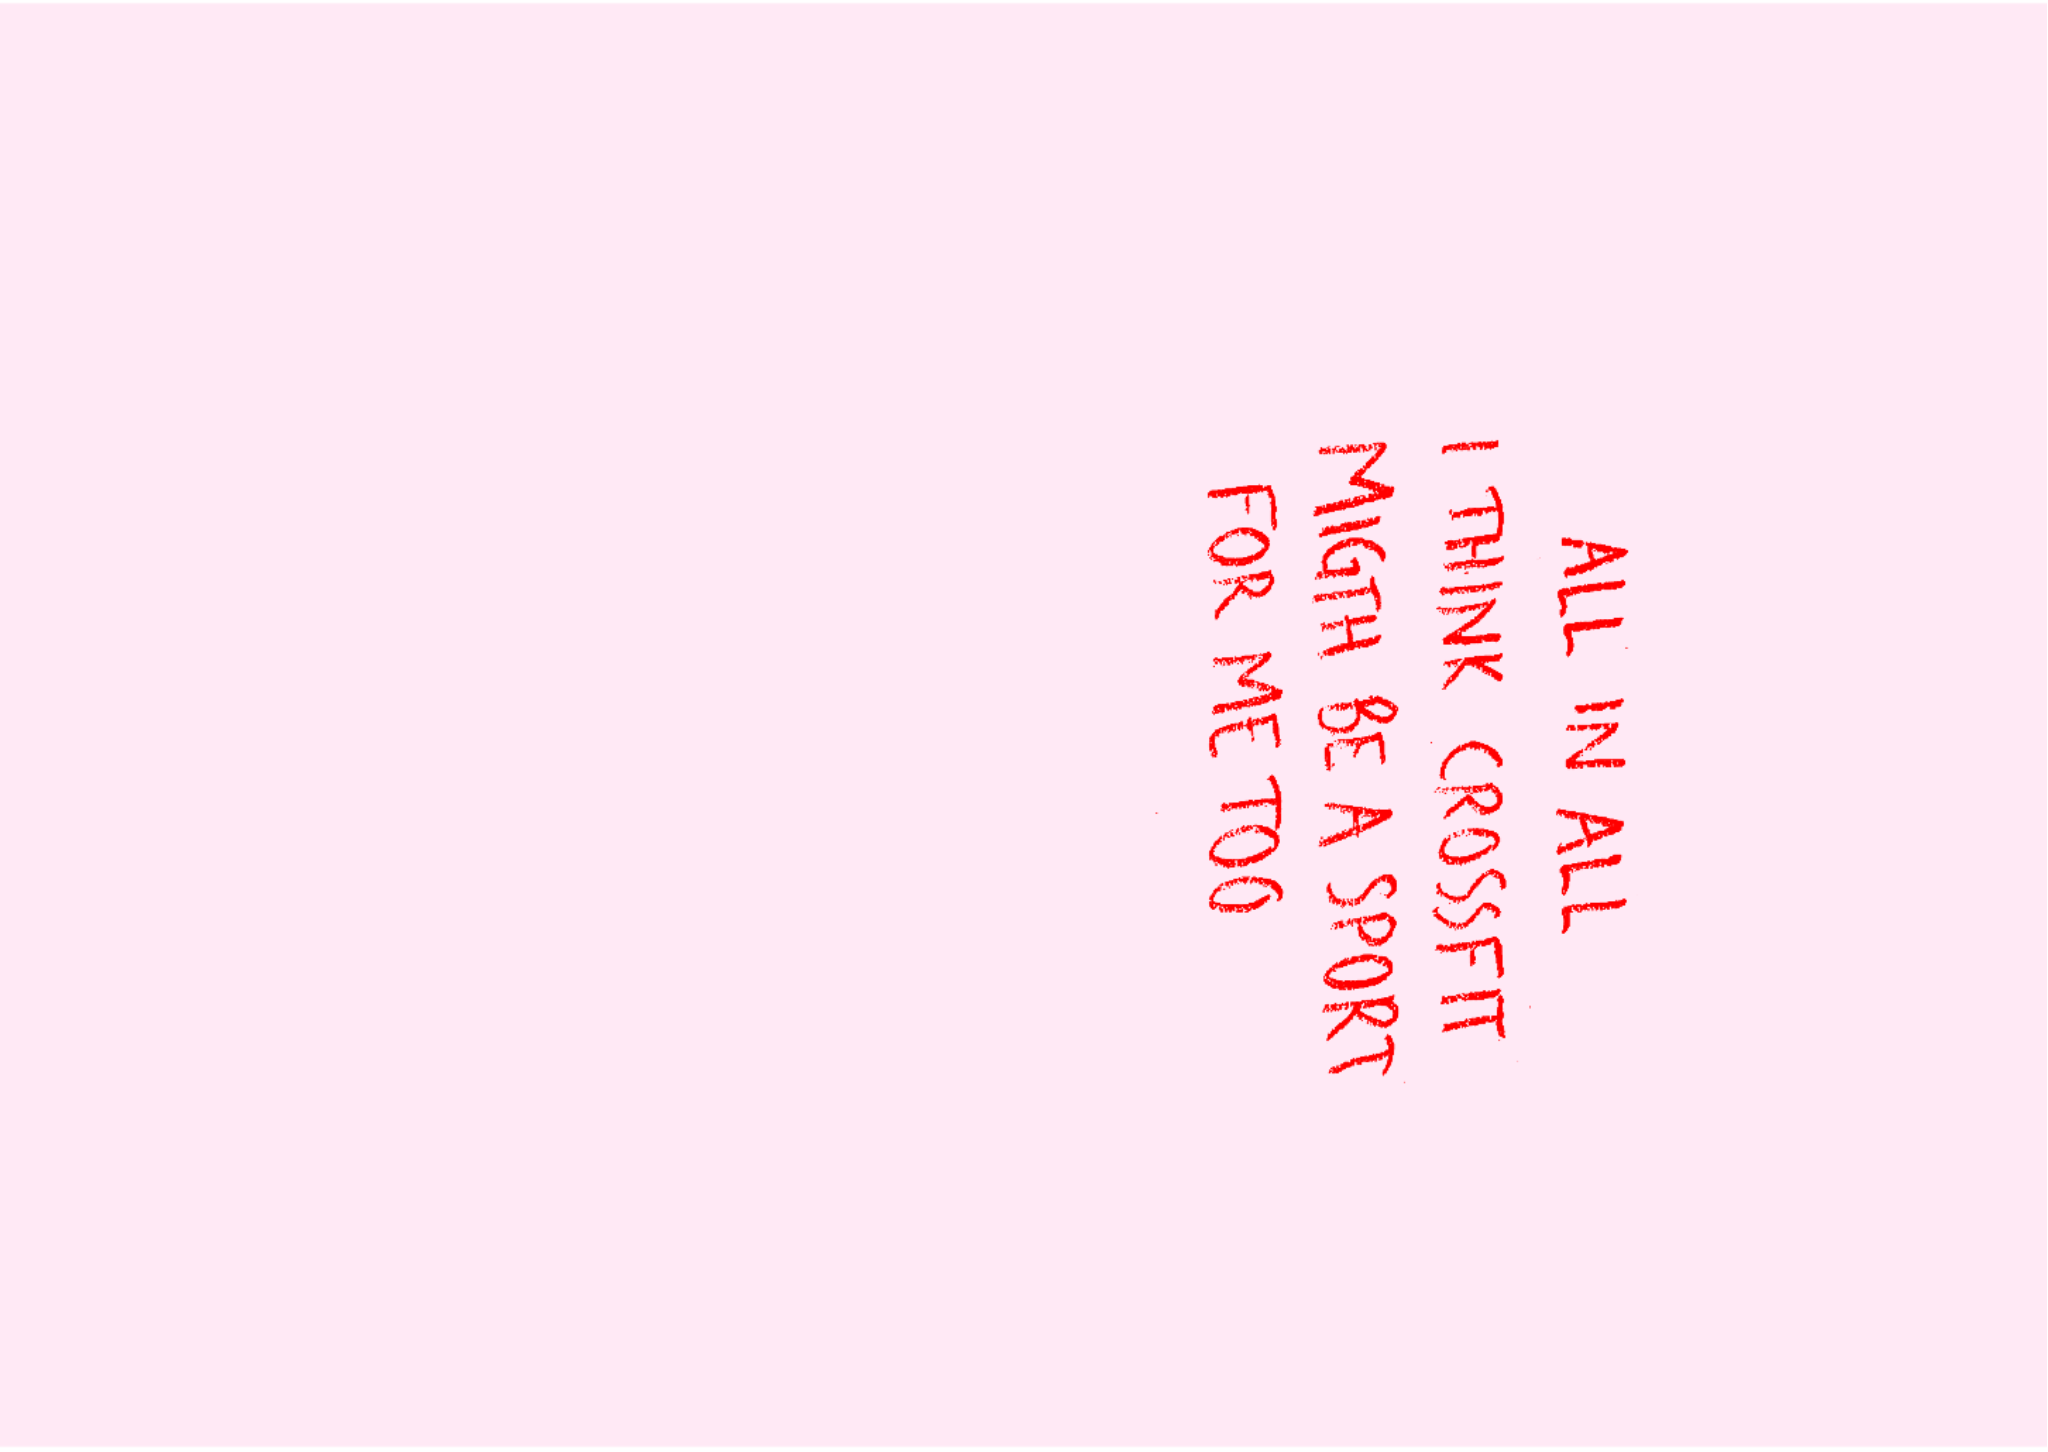 ALL IN ALL
I THINK CROSSFIT
MIGTH BE A SPORT
FOR ME TOO